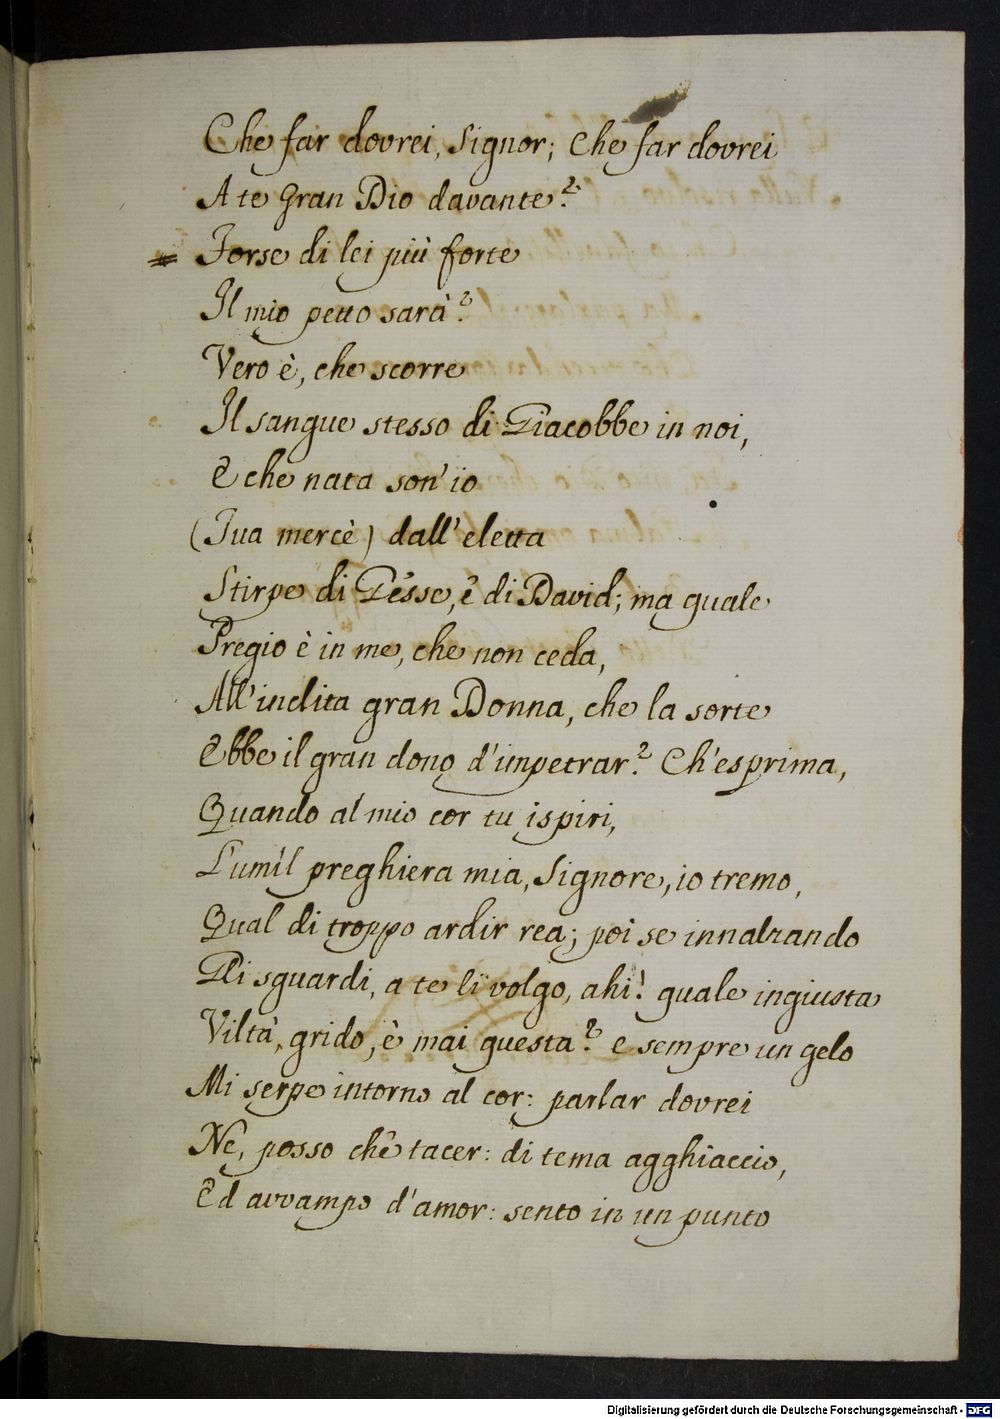 Che far dovrei, Signor; Che far dovrei
A te gran Dio davante?
Forse di lei più forte
Il mio petto sarà?
Vero è, che scorre
Il sangue stesso di Giacobbe in noi,
E che nata son' io
(Tua mercè) dall' eletta
Stirpe di Gésse, è di David; ma quale
Pregio è in me, che non ceda,
All' inclita gran Donna, che la sorte
Ebbe il gran dono d' impetrar? Ch' esprima,
Quando al mio cor tu ispiri,
L' umil preghiera mia, Signore, io tremo,
Qual di troppo ardir rea; poi se innalzando
Gli sguardi, a te li volgo, ahi! quale ingiusta
Viltà, grido, è mai questa? e sempre un gelo
Mi serpe intorno al cor: parlar dovrei
Nè, posso chè tacer: di tema agghiaccio,
Ed avvampo d' amor: sento in un punto
Digitalisierung gefördert durch die Deutsche Forschungsgemeinschaft - DFG